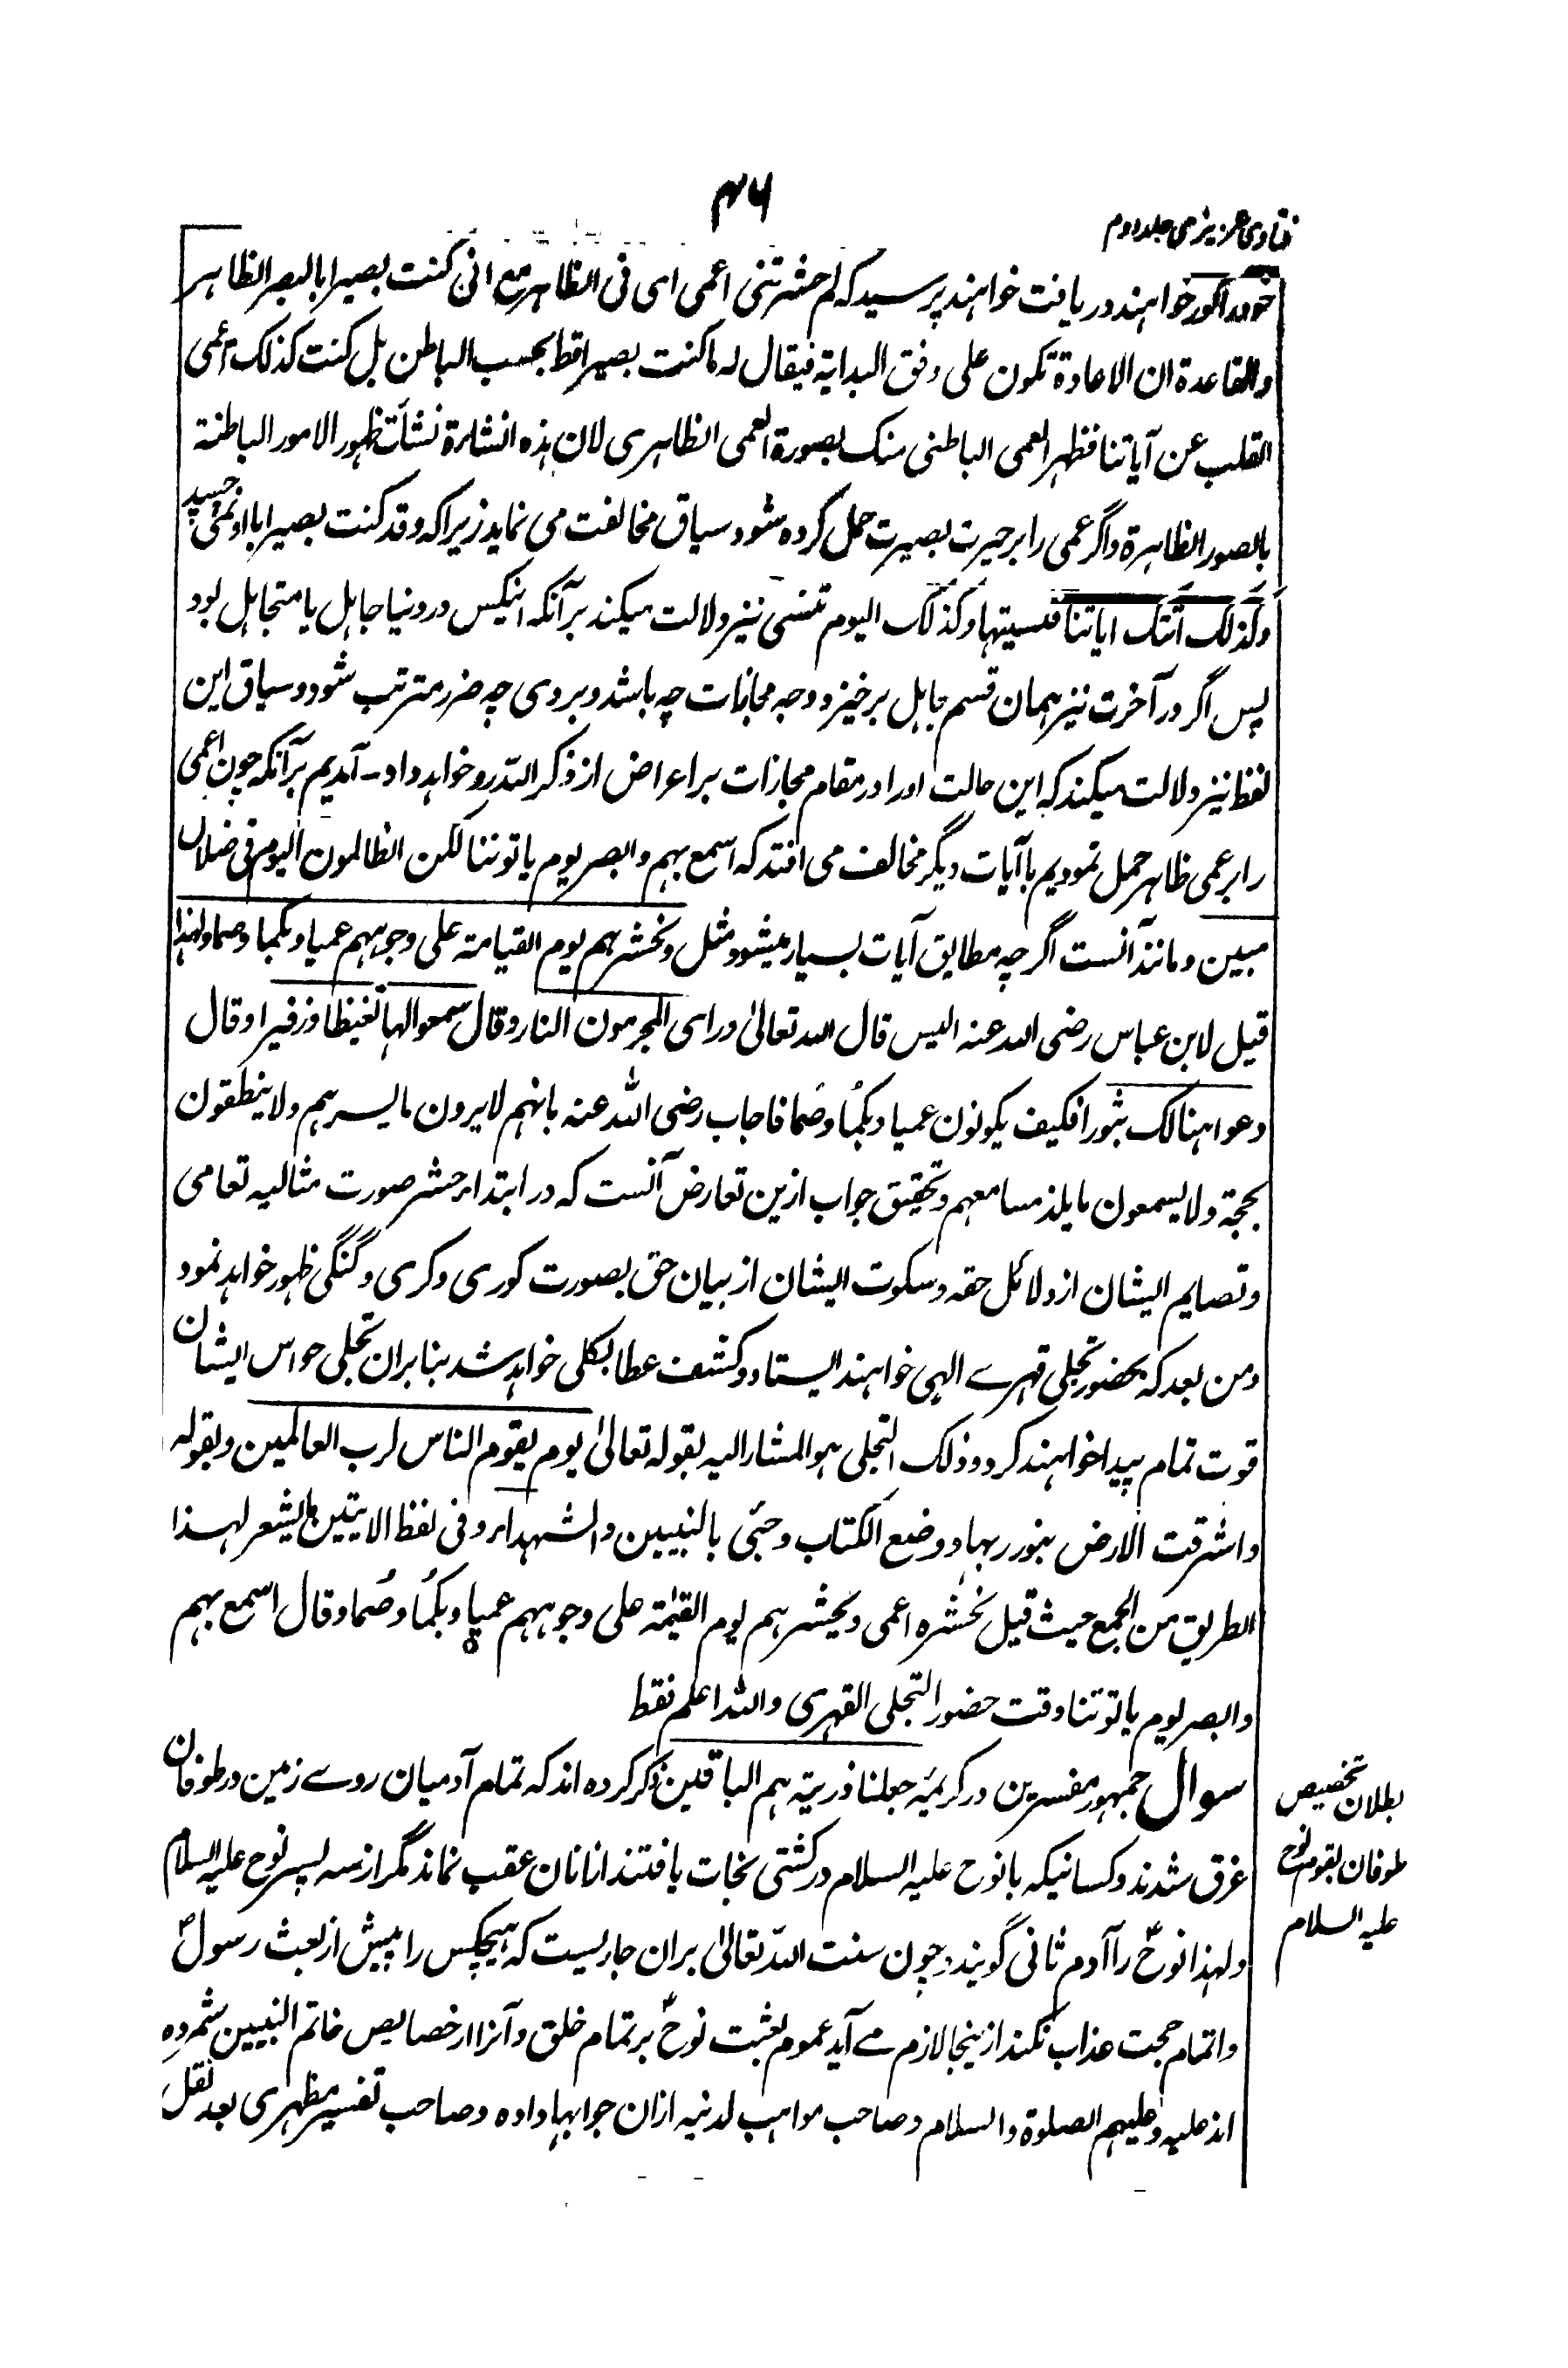 ۴۶
فتاوی عزیزی جلد دوم
خود را کور خواهند دریافت خواهند پرسید که لم حشرتنی اعمی ای فی الظاهر مع انی کنت بصیرا بالبصر الظاهر
والقاعدة ان الاعادة تکون علی وفق البدایة فیقال له ما کنت بصیرا قط بحسب الباطن بل کنت کذلک اعمی
القلب عن آیاتنا فظهر العمی الباطنی منک بصورة العمی الظاهری لان هذه النشارة نشأت ظهور الامور الباطنة
بالصور الظاهرة واگر عمی را بر حیرت بصیرت حمل کرده شود سیاق مخالفت می نماید زیرا که وقد کنت بصیرا با او نمی چسپد
وکذلک اتتک ایاتنا فنسیتها وکذلک الیوم تنسی نیز دلالت میکند بر آنکه اینکس در دنیا جاهل یا متجاهل بود
پس اگر در آخرت نیز همان قسم جاهل برخیزد وجه مجازات چه باشد و بر وی چه ضرر مترتب شود و سیاق این
لفظ نیز دلالت میکند که این حالت او را در مقام مجازات بر اعراض از ذکر الله رو خواهد داد - آمدیم بر آنکه چون اعمی
را بر عمی ظاهر حمل نمودیم با آیات دیگر مخالف می افتد که اسمع بهم وابصر یوم یاتوننا لکن الظالمون الیوم فی ضلال
مبین و مانند آنست اگر چه مطابق آیات بسیار میشود مثل ونحشرهم یوم القیامة علی وجوههم عمیا وبکما وصما ولهذا
قیل لابن عباس رضی الله عنه الیس قال الله تعالیٰ ورای المجرمون النار وقال سمعوا لها تغیظا وزفیرا وقال
دعوا هنالک ثبورا فکیف یکونون عمیا وبکمُا وصُما فاجاب رضی الله عنه بانهم لایرون مایسرهم ولا ینطقون
بحجة ولا یسمعون مایلذ مسامعهم وتحقیق جواب ازین تعارض آنست که در ابتداء حشر صورت مثالیه تعامی
وتصایم ایشان از دلائل حقه وسکوت ایشان از بیان حق بصورت کوری وکری وگنگی ظهور خواهد نمود
ومن بعد که بحضور تجلی قهرے الهی خواهند ایستاد وکشف عطا بکلی خواهد شد بنا بران تجلی حواس ایشان
قوت تمام پیدا خواهند کرد وذلک التجلی هو المشار الیه بقوله تعالیٰ یوم یقوم الناس لرب العالمین وبقوله
واشرقت الارض بنور ربها ووضع الکتاب وجیٔ بالنبیین والشهداء وفی لفظ الایتین مایشعر لهذا
الطریق من الجمع حیث قیل نحشره اعمی ونحشرهم یوم القیٰمة علی وجوههم عمیا وبکمُا وصُما وقال اسمع بهم
وابصر یوم یاتوننا وقت حضور التجلی القهری والله اعلم فقط
سوال جمهور مفسرین در کریمهٔ جعلنا ذریته هم الباقین ذکر کرده اند که تمام آدمیان روے زمین در طوفان
غرق شدند وکسانیکه با نوح علیه السلام در کشتی نجات یافتند ازانان عقب نماند مگر از سه پسر نوح علیه السلام
ولهذا نوحؑ را آدم ثانی گویند، چون سنت الله تعالیٰ بران جاریست که هیچکس را پیش از بعث رسولؐ
واتمام حجت عذاب نکند ازینجا لازم مے آید عموم بعثت نوحؑ بر تمام خلق وآنرا از خصایص خاتم النبیین شمرده
اند علیه وعلیهم الصلوة والسلام وصاحب مواهب لدنیه ازان جوابها داده وصاحب تفسیر مظهری بعد نقل
بطلان تخصیص
طوفان بقوم نوح
علیه السلام